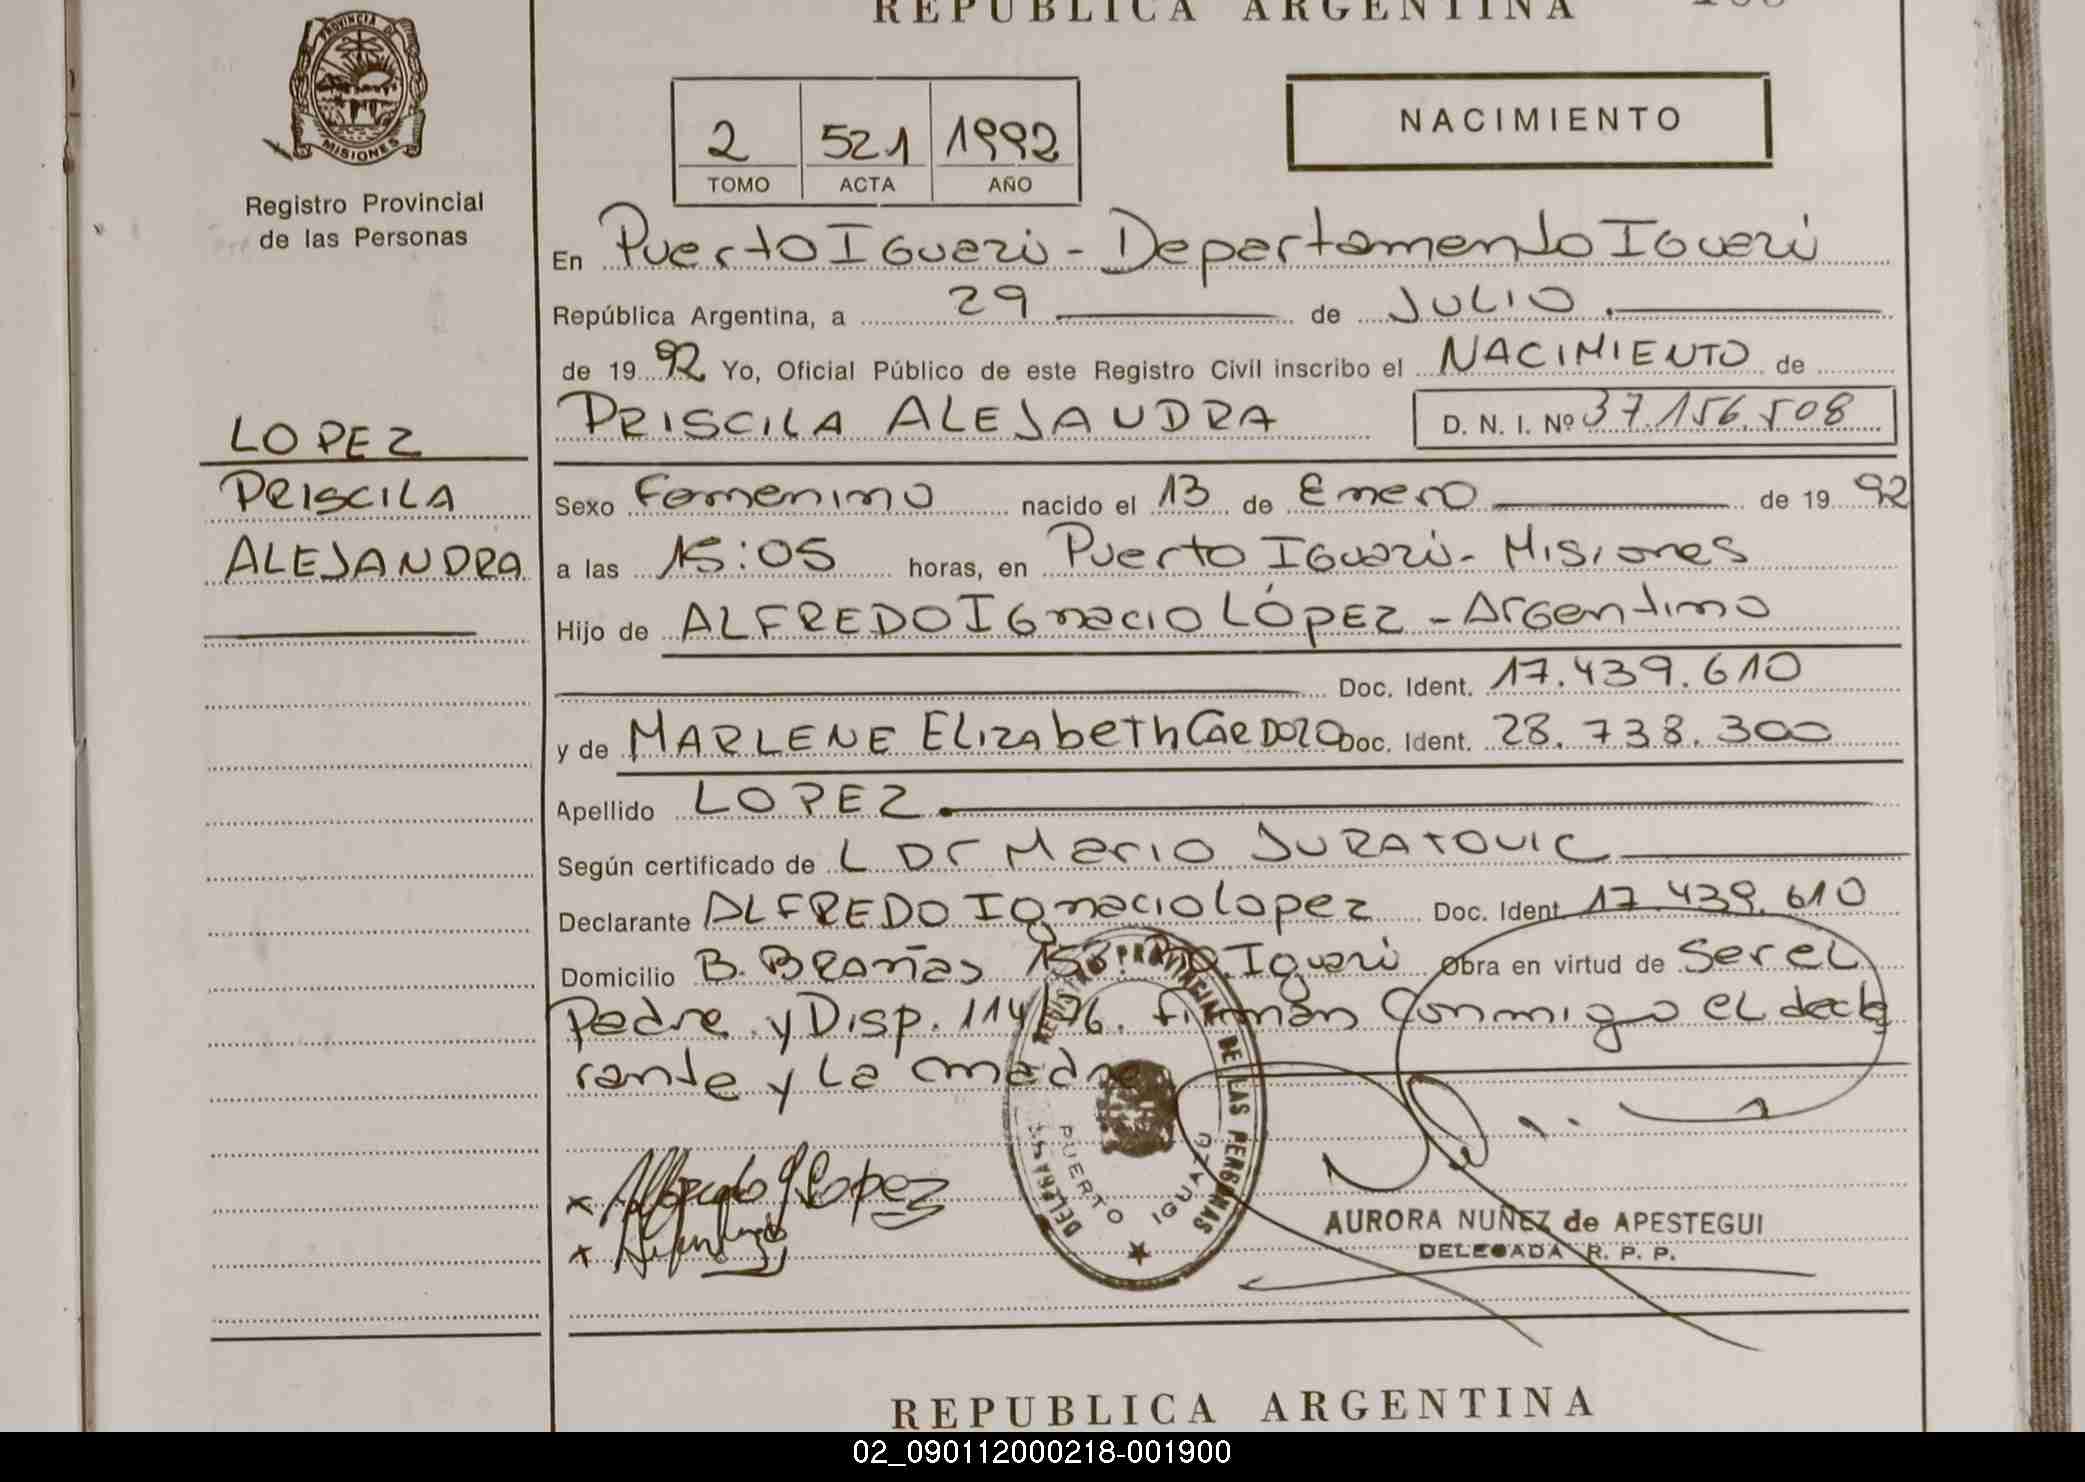 REPUBLICA ARGENTINA
PROVINCIA DE
MISIONES
Registro Provincial
de las Personas
2 521 1992
TOMO ACTA AÑO
NACIMIENTO
En Puerto Iguazú - Departamento Iguazú
República Argentina, a 29 de JULIO.
de 1992 Yo, Oficial Público de este Registro Civil inscribo el NACIMIENTO de
PRISCILA ALEJANDRA D. N. I. Nº 37.156.508
LOPEZ
PRISCILA
ALEJANDRA
Sexo Femenino nacido el 13 de Enero de 1992
a las 15:05 horas, en Puerto Iguazú - Misiones
Hijo de ALFREDO IGnacio LÓPEZ - Argentino
Doc. Ident. 17.439.610
y de MARLENE ElizabeTh CARDOZO Doc. Ident. 28.738.300
Apellido LOPEZ.
Según certificado de L Dr Mario JURATOVIC
Declarante ALFREDO IGnacio Lopez Doc. Ident. 17.439.610
Domicilio B. BRañas 158. Pto. Iguazú Obra en virtud de Ser el
Padre y Disp. 114/76. Firman Conmigo el decla
rante y la madre
REGISTRO PROVINCIAL DE LAS PERSONAS
PUERTO IGUAZU
x Alfredo I Lopez
x
AURORA NUÑEZ de APESTEGUI
DELEGADA R. P. P.
REPUBLICA ARGENTINA
02_090112000218-001900